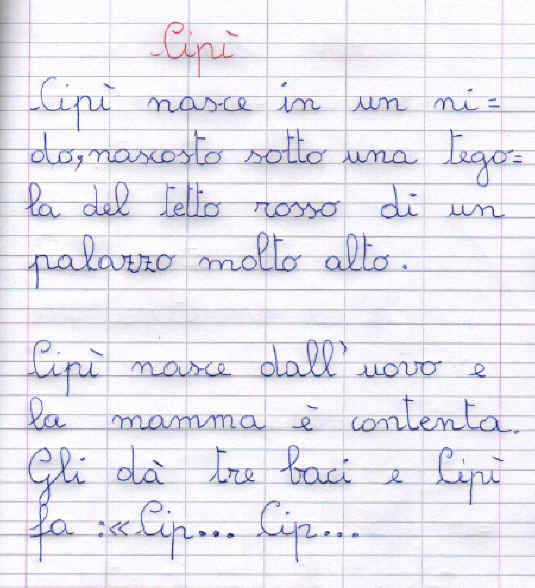 Cipì
Cipì nasce in un ni=
do, nascosto sotto una tego=
la del tetto rosso di un
palazzo molto alto.
Cipì nasce dall'uovo e
la mamma è contenta.
Gli dà tre baci e Cipì
fa :«Cip... Cip...